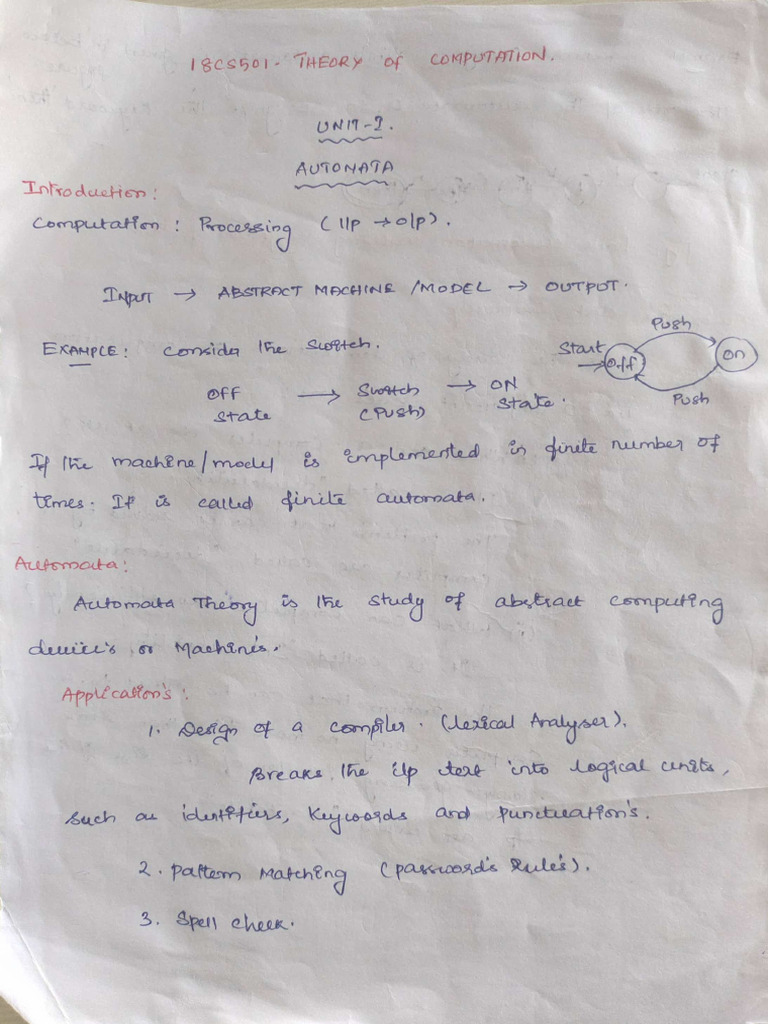 18CS501- THEORY of COMPUTATION.
UNIT-I.
AUTONATA
Introduction:
Computation : Processing (I/p → o/p).
INPUT → ABSTRACT MACHINE /MODEL → OUTPUT.
EXAMPLE: Consider the Switch.
Push
Start
Off
On
Push
OFF → Switch → ON
State (Push) State.
If the machine/model is implemented in finite number of
times. It is called finite automata.
Automata:
Automata Theory is the study of abstract computing
device's or Machine's.
Application's:
1. Design of a compiler. (lexical Analyser).
Breaks the i/p text into logical units,
Such as identifiers, Keywords and punctuation's.
2. Pattern Matching (password's Rule's).
3. Spell check.